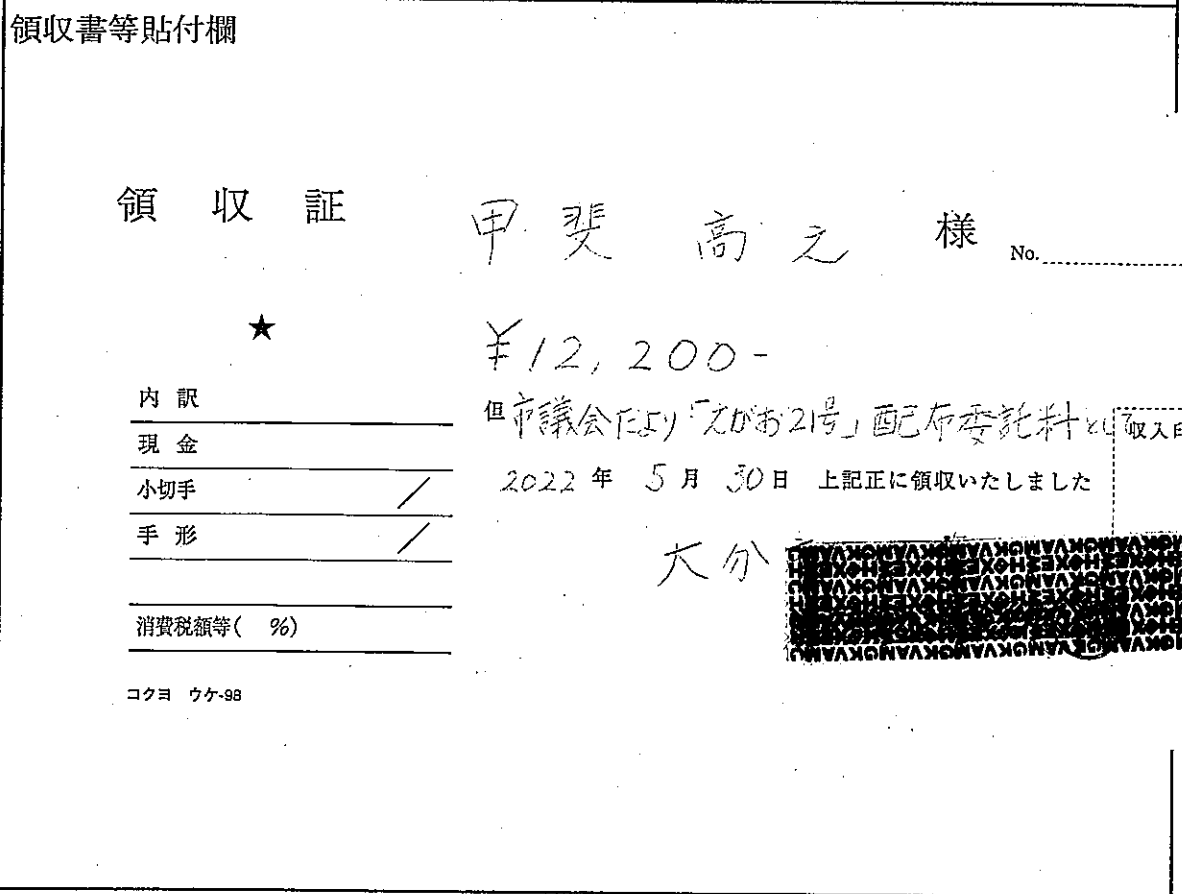 領収書等貼付欄
領収証 甲斐 高之 様 No.
★
¥12,200-
内訳
但 市議会だより「えがお21号」配布委託料として 収入印
現金
小切手 /
2022年 5月 30日 上記正に領収いたしました
手形 /
大分
消費税額等( %)
コクヨ ウケ-98